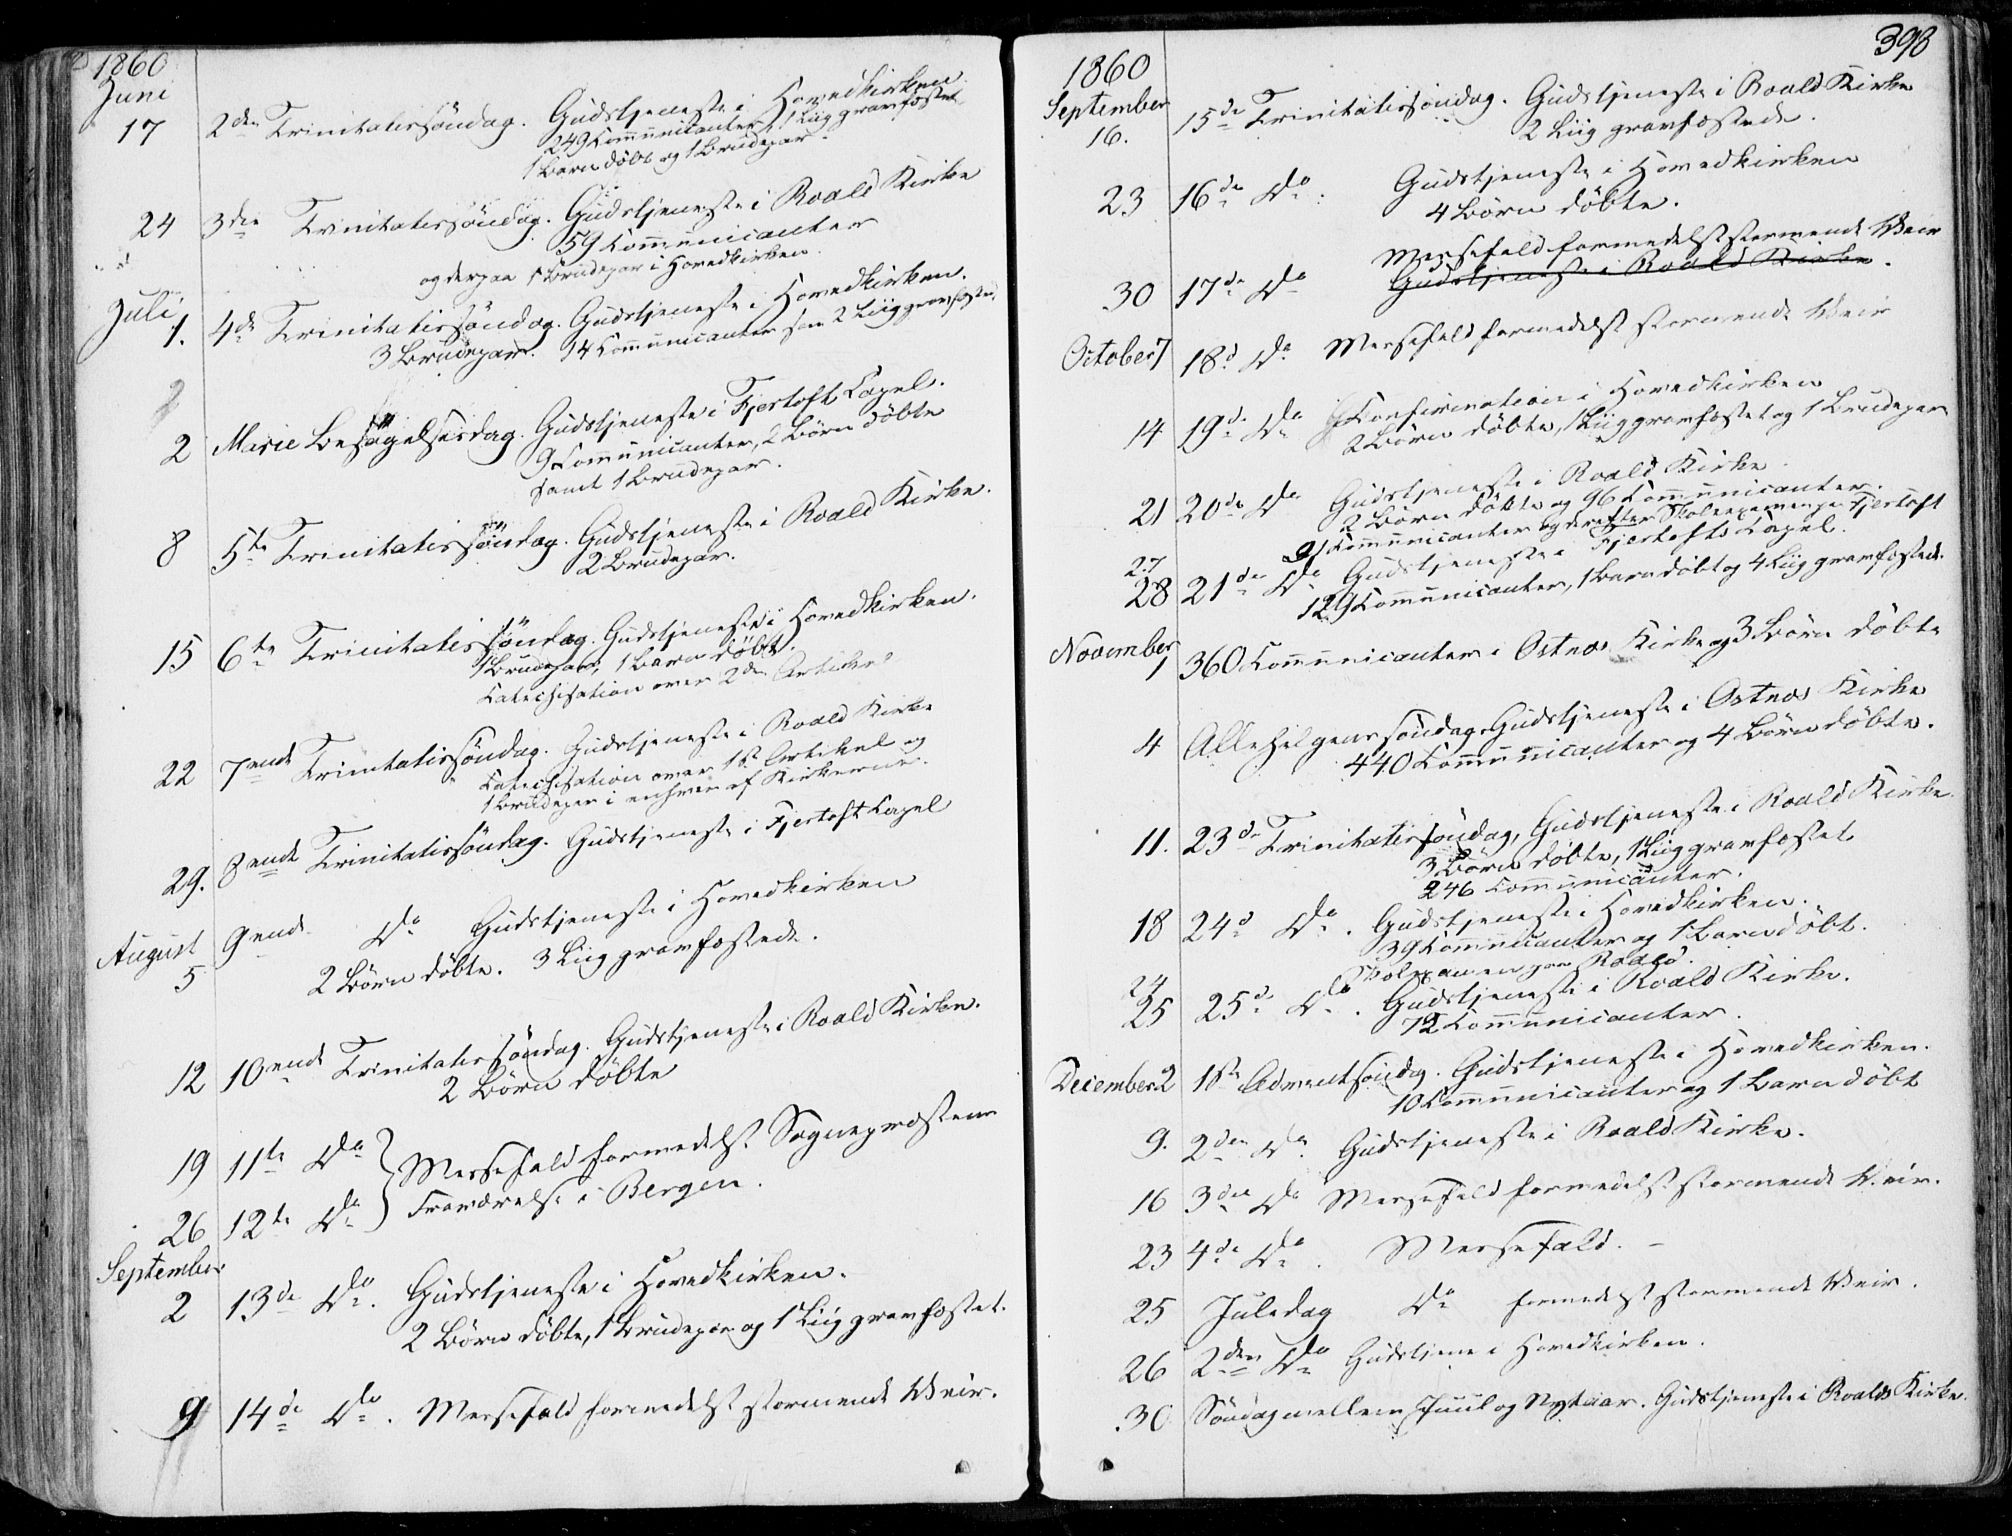 1860
Juni
17 2den Trinitatissöndag. Gudstjeneste i Hovedkirken
249 Communicanter, 1 Liig gravfæstet
1 Barn döbt og 1 Brudepar.
24 3die Trinitatissöndag. Gudstjeneste i Roald Kirke
59 Communicanter
og derpaa 1 Brudepar i Hovedkirken.
Juli
1. 4de Trinitatissöndag. Gudstjeneste i Hovedkirken.
3 Brudepar. 14 Communicanter 2 Liig gravfæstede.
2 Marie Besøgelsesdag. Gudstjeneste i Fjertoft Capel.
9 Communicanter, 2 Börn döbte
samt 1 Brudepar.
8 5te Trinitatissöndag. Gudstjeneste i Roald Kirke.
2 Brudepar.
15 6te Trinitatissöndag. Gudstjeneste i Hovedkirken.
1 Brudepar, 1 Barn döbt.
Catechisation over 2den Artikel
22 7ende Trinitatissöndag. Gudstjeneste i Roald Kirke
Catechisation over 1ste Artikel og
1 Brudepar i enhver af Kirkerne.
29. 8ende Trinitatissöndag. Gudstjeneste i Fjertoft Capel
August
5 9ende Do Gudstjeneste i Hovedkirken
2 Börn döbte. 3 Liig gravfæstede.
12 10ende Trinitatissöndag. Gudstjeneste i Roald Kirke.
2 Börn döbte
19 11te Do Messefald formedelst Sognepræstens
26 12te Do Fraværelse i Bergen.
September
2 13de Do. Gudstjeneste i Hovedkirken.
2 Börn döbte, 1 Brudepar og 1 Liig gravfæstet.
9 14de Do. Messefald formedelst stormende Veir.
398
1860
September
16. 15de Trinitatissöndag. Gudstjeneste i Roald Kirke
2 Liig gravfæstede.
23 16de Do. Gudstjeneste i Hovedkirken
4 Börn döbte.
Messefald formedelst stormende Veir
30 17de Do Gudstjeneste i Roald Kirke.
October 7 18d Do Messefald formedelst stormende Veir
14 19de Do Confirmation i Hovedkirken
2 Börn döbte, 1 Liig gravfæstet og 1 Brudepar
21 20de Do Gudstjeneste i Roald Kirke.
2 Börn döbte og 96 Communicanter.
27 91 Communicanter og derefter Skoleexamen paa Fjertoft
28 21de Do Gudstjeneste i Fjertofts Capel.
129 Communicanter, 1 Barn döbt og 4 Liig gravfæstede.
November
1 360 Communicanter i Ostnæs Kirke og 3 Börn döbte
4 Allehelgenssöndag. Gudstjeneste i Ostnæs Kirke
440 Communicanter og 4 Börn döbte.
11. 23de Trinitatissöndag, Gudstjeneste i Roald Kirke.
3 Börn döbte, 1 Liig gravfæstet
246 Communicanter.
18 24d Do. Gudstjeneste i Hovedkirken.
39 Communicanter og 1 Barn döbt.
24 Skolexamen paa Roald.
25 25d Do. Gudstjeneste i Roald Kirke.
72 Communicanter.
December 2 1ste Adventsöndag. Gudstjeneste i Hovedkirken.
10 Communicanter og 1 Barn döbt
9. 2den Do. Gudstjeneste i Roald Kirke.
16 3die Do Messefald formedelst stormende Veir.
23 4de Do. Messefald. –
25 Juledag Do formedelst stormende Veir.
26 2den Do Gudstjene i Hovedkirken.
30 Söndag mellem Juul og Nytaar. Gudstjeneste i Roalds Kirke.